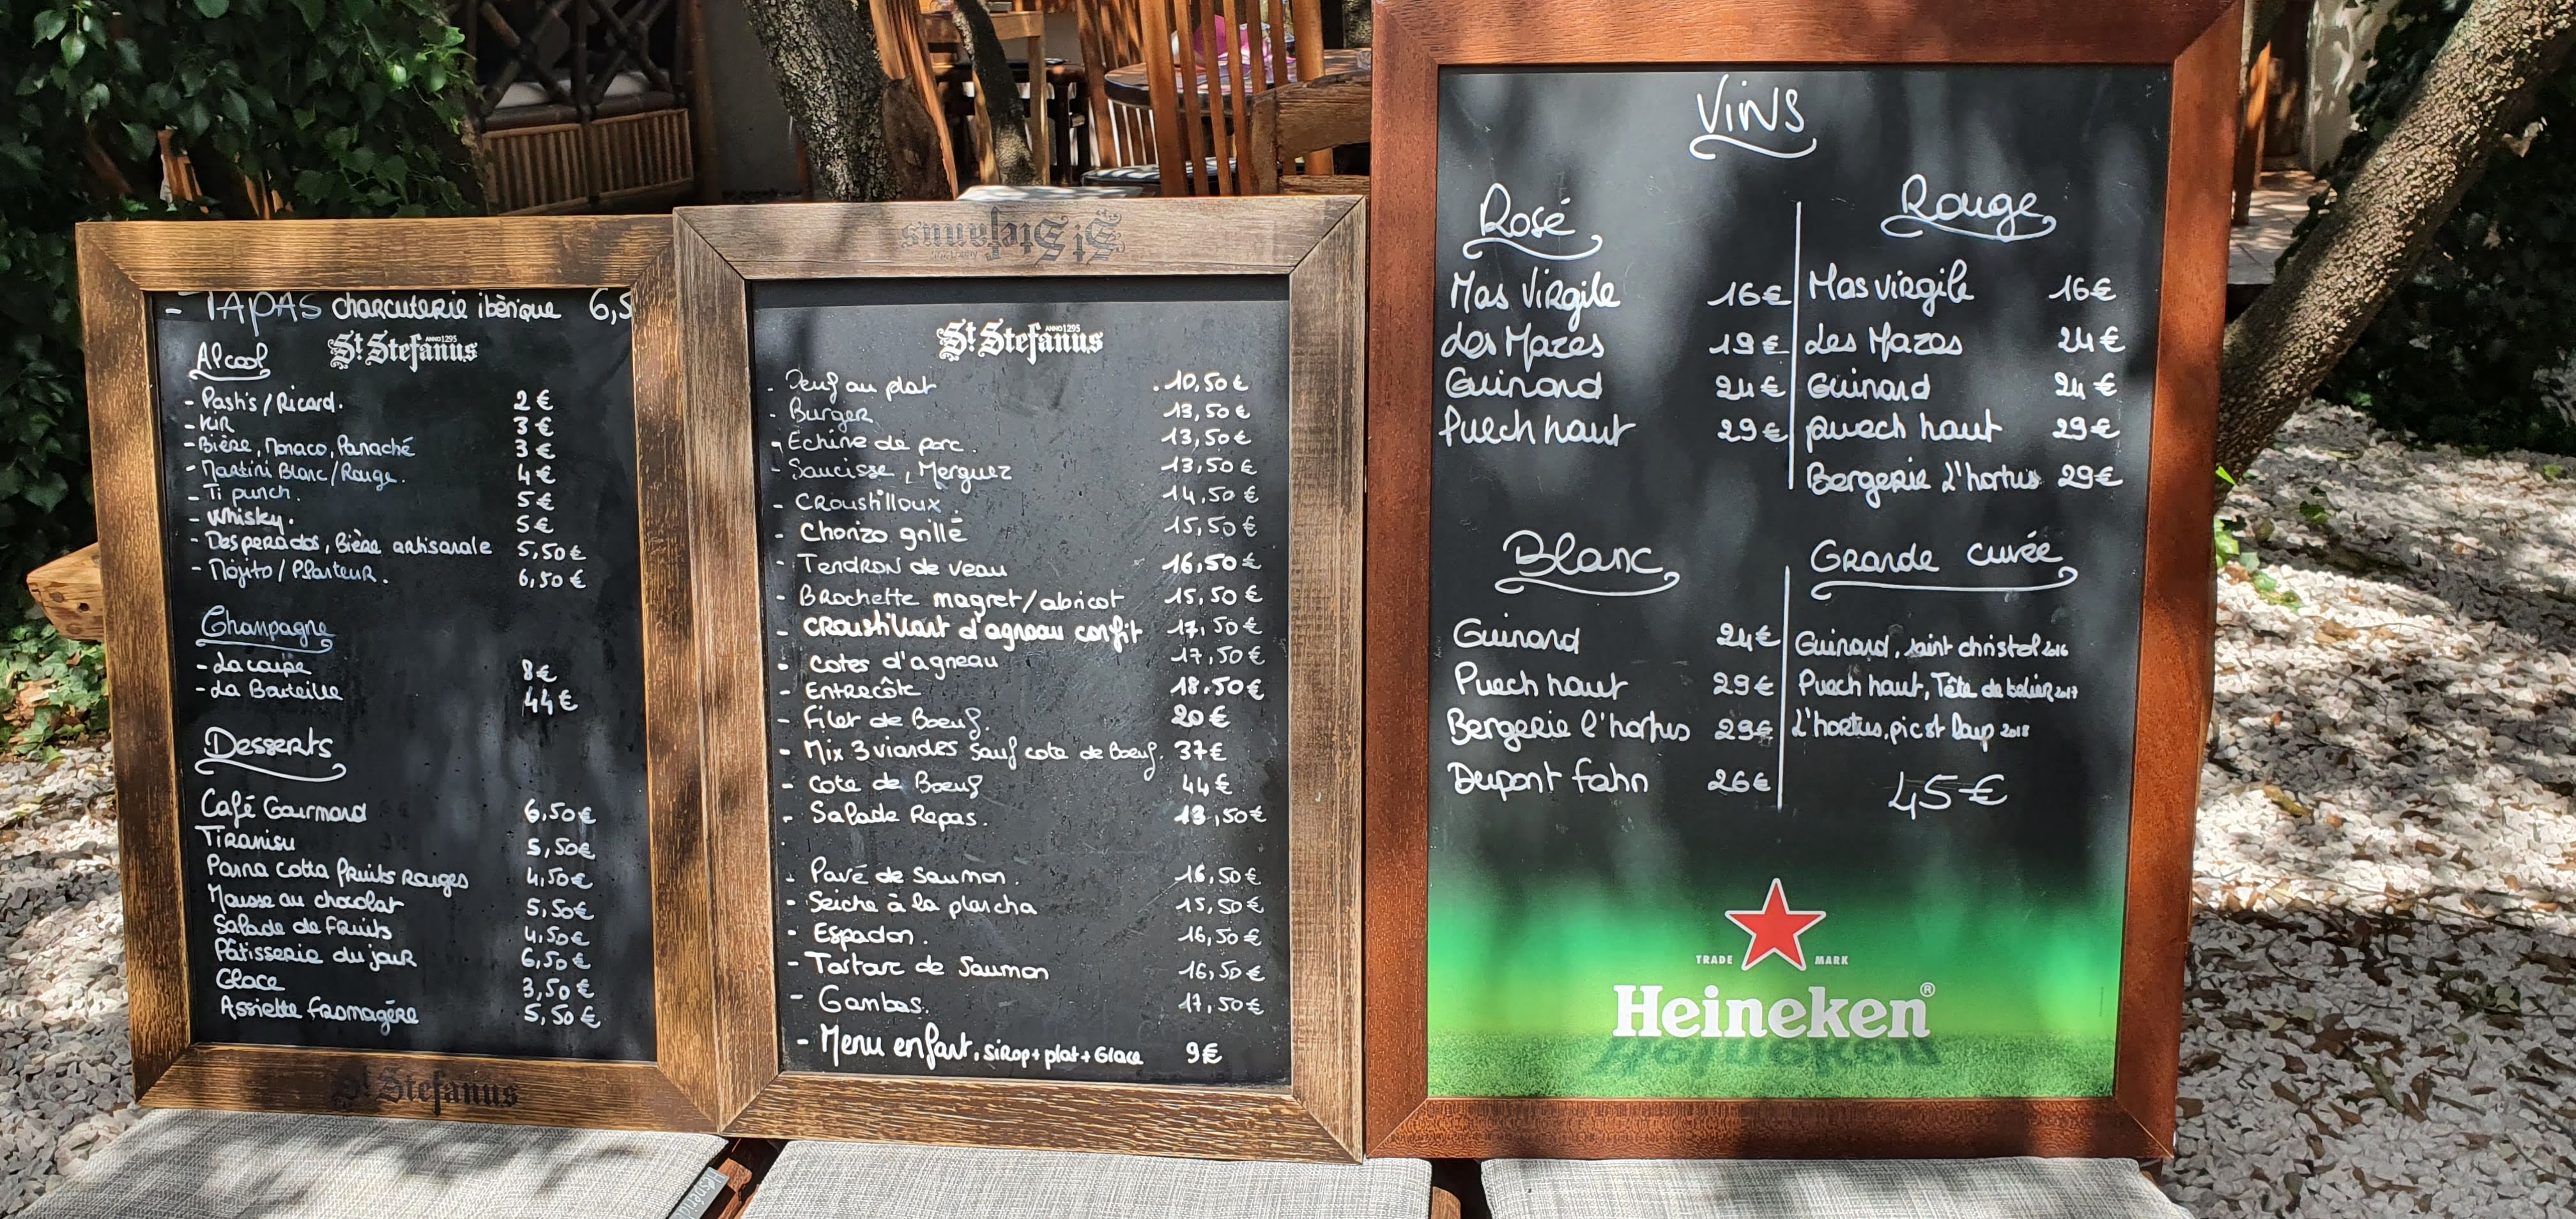 - TAPAS charcuterie ibérique 6,5
St Stefanus
ANNO 1295
Alcool
- Pastis / Ricard. 2 €
- Kir 3 €
- Bière, Monaco, Panaché 3 €
- Martini Blanc / Rouge. 4 €
- Ti punch. 5 €
- Whisky. 5 €
- Desperados, Bière artisanale 5,50 €
- Mojito / Planteur. 6,50 €
Champagne
- La coupe 8 €
- La Bouteille 44 €
Desserts
Café Gourmand 6,50 €
Tiramisu 5,50 €
Panna cotta fruits rouges 4,50 €
Mousse au chocolat 5,50 €
Salade de fruits 4,50 €
Pâtisserie du jour 6,50 €
Glace 3,50 €
Assiette fromagère 5,50 €
St Stefanus
St Stefanus
St Stefanus
ANNO 1295
- Oeuf au plat . 10,50 €
- Burger 13,50 €
- Echine de porc. 13,50 €
- Saucisse, Merguez 13,50 €
- Croustilloux. 14,50 €
- Chorizo grillé 15,50 €
- Tendron de veau 16,50 €
- Brochette magret/abricot 15,50 €
- Croustillant d'agneau confit 17,50 €
- Cotes d'agneau 17,50 €
- Entrecôte 18.50 €
- Filet de Boeuf. 20 €
- Mix 3 viandes sauf cote de Boeuf. 37 €
- Cote de Boeuf 44 €
- Salade Repas. 13,50 €
- Pavé de Saumon. 16,50 €
- Seiche à la plancha 15,50 €
- Espadon. 16,50 €
- Tartare de Saumon 16,50 €
- Gambas. 17,50 €
- Menu enfant, sirop + plat + Glace 9 €
Vins
Rosé
Mas Virgile 16 €
des Mazes 19 €
Guinard 24 €
Puech haut 29 €
Rouge
Mas virgile 16 €
des Mazes 24 €
Guinard 24 €
puech haut 29 €
Bergerie L'hortus 29 €
Blanc
Guinard 24 €
Puech haut 29 €
Bergerie l'hortus 29 €
Dupont fahn 26 €
Grande cuvée
Guinard, saint christol 2016
Puech haut, Tête de belier 2017
L'hortus, pic st Loup 2018
45 €
TRADE MARK
Heineken®